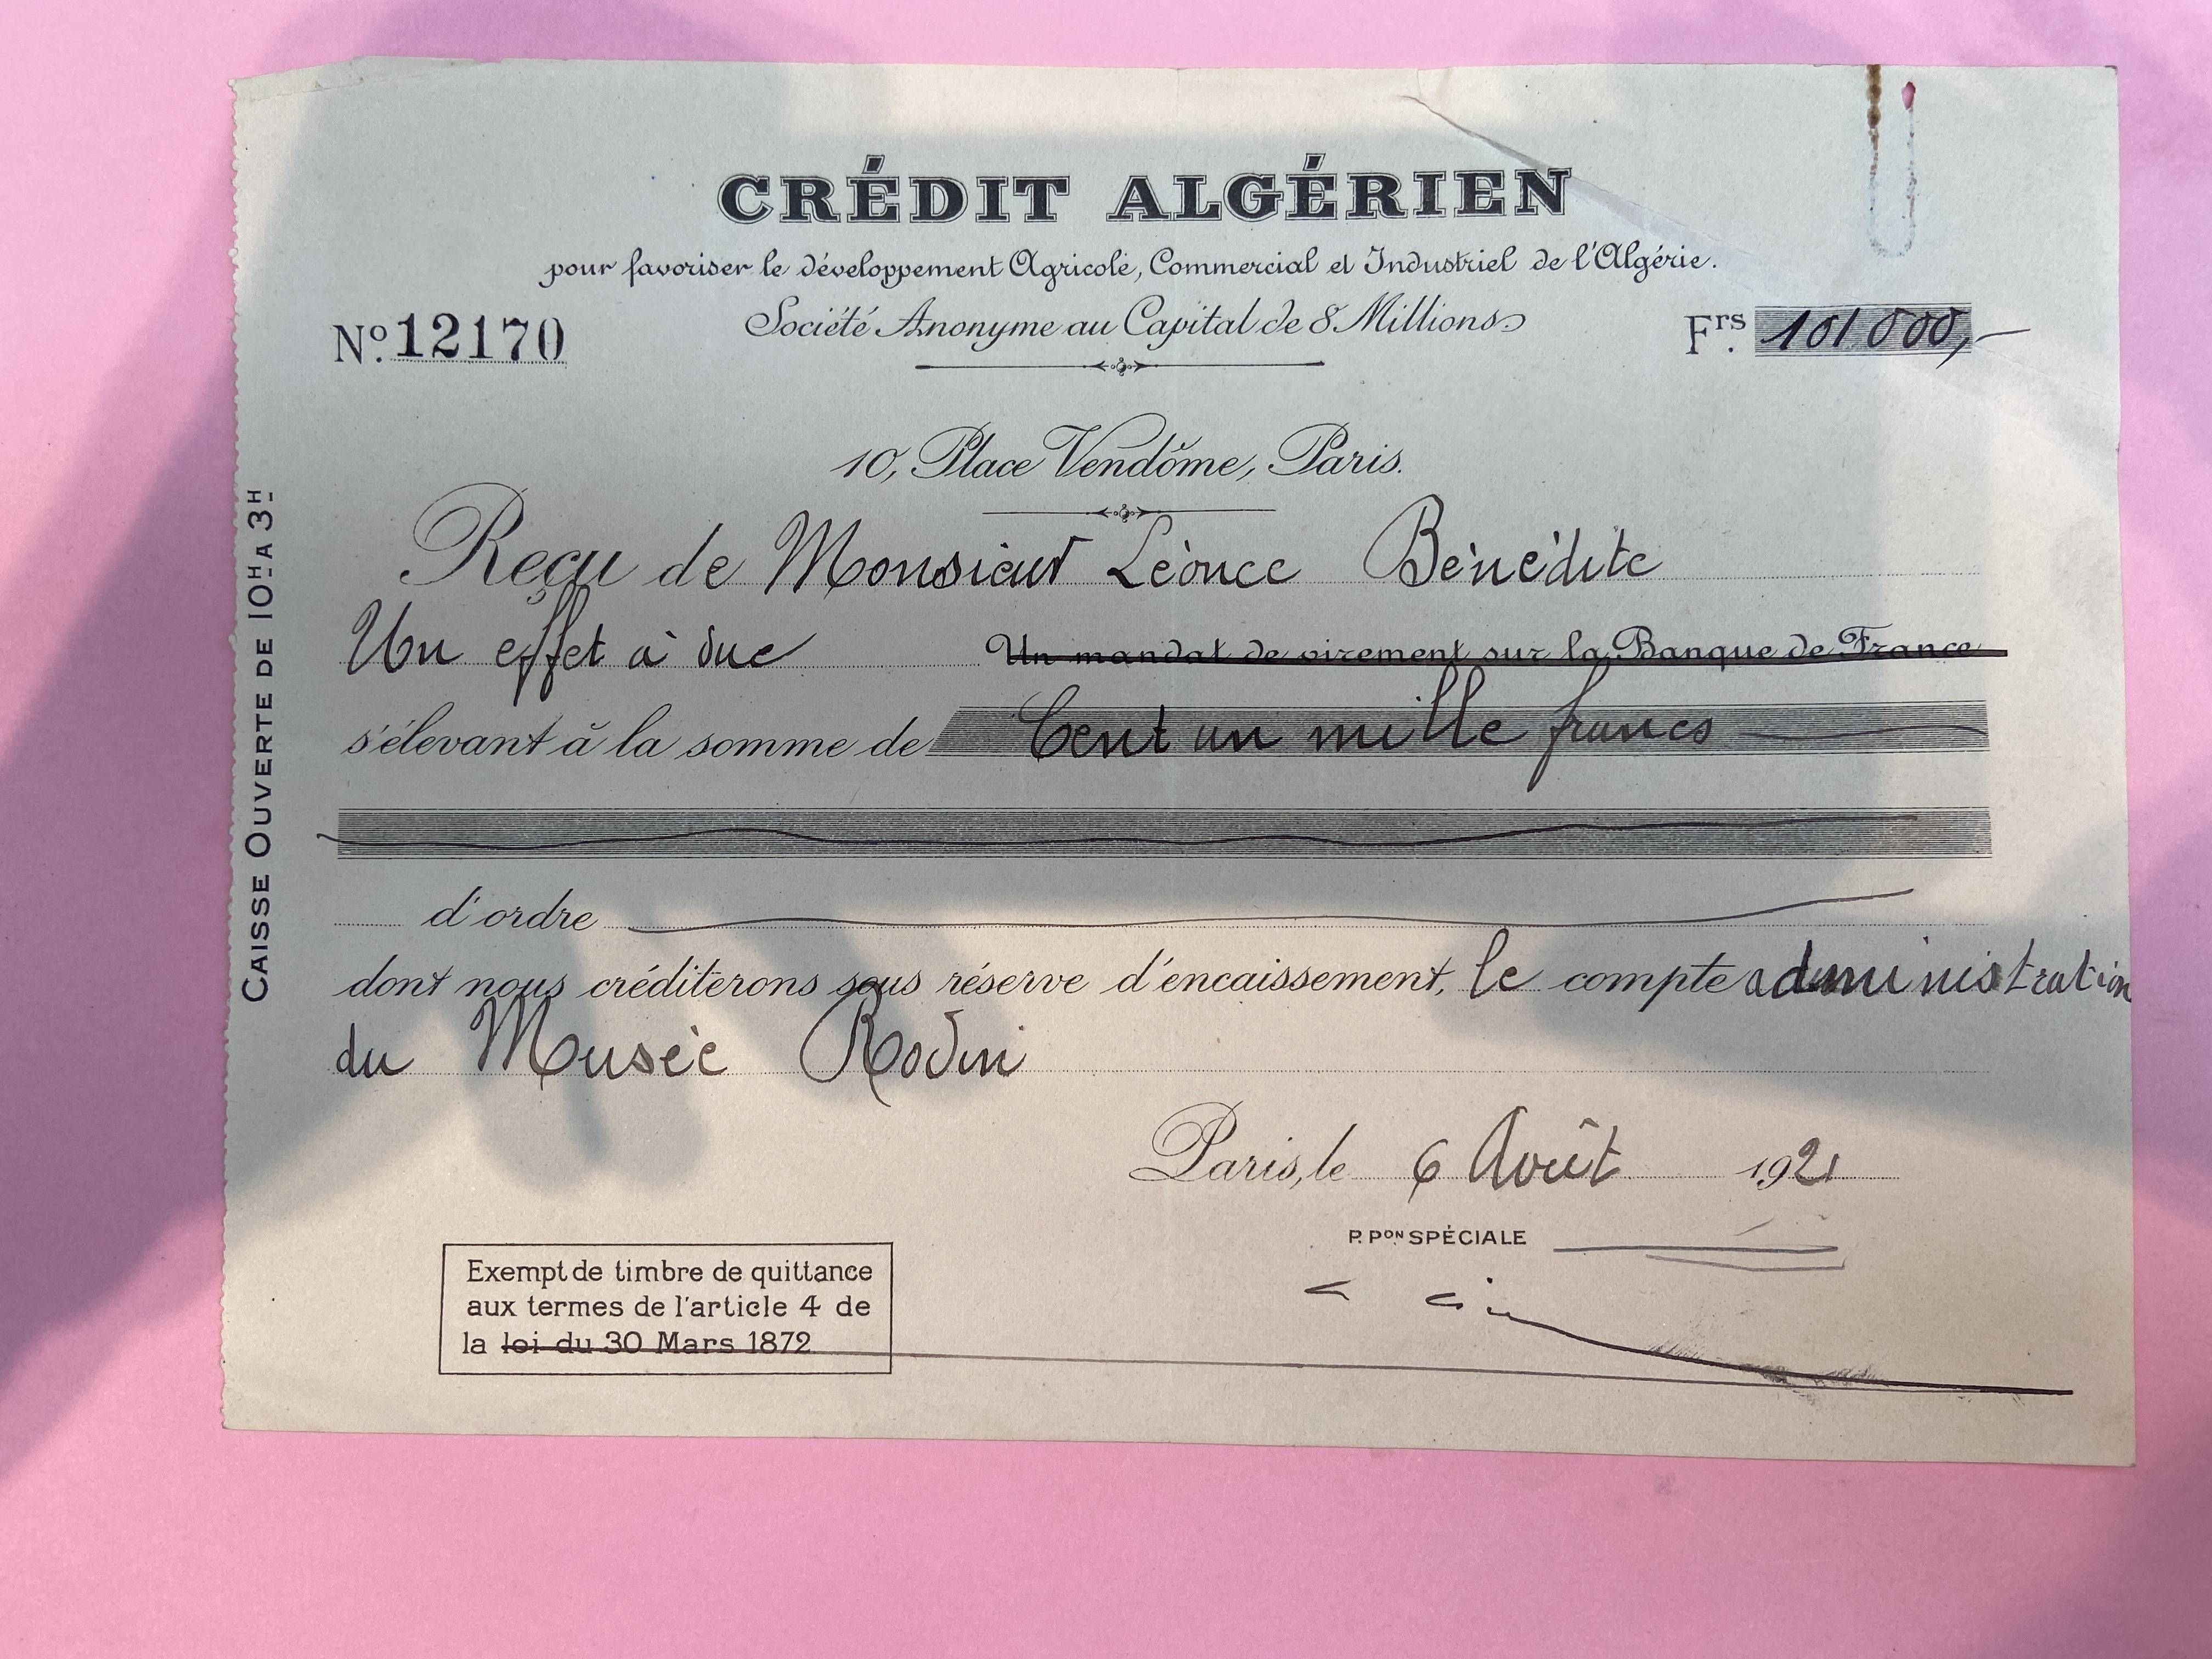 CRÉDIT ALGÉRIEN
pour favoriser le développement Agricole, Commercial et Industriel de l'Algérie.
Société Anonyme au Capital de 8 Millions
Nº 12170
Frs. 101 000,-
10, Place Vendôme, Paris.
Reçu de Monsieur Léonce Bénédite
Un effet à vue Un mandat de virement sur la Banque de France
s'élevant à la somme de Cent un mille francs
d'ordre
dont nous créditerons sous réserve d'encaissement, le compte administration
du Musée Rodin
Paris, le 6 Août 1921
P. Pon SPÉCIALE
Exempt de timbre de quittance
aux termes de l'article 4 de
la loi du 30 Mars 1872
CAISSE OUVERTE DE 10H A 3H